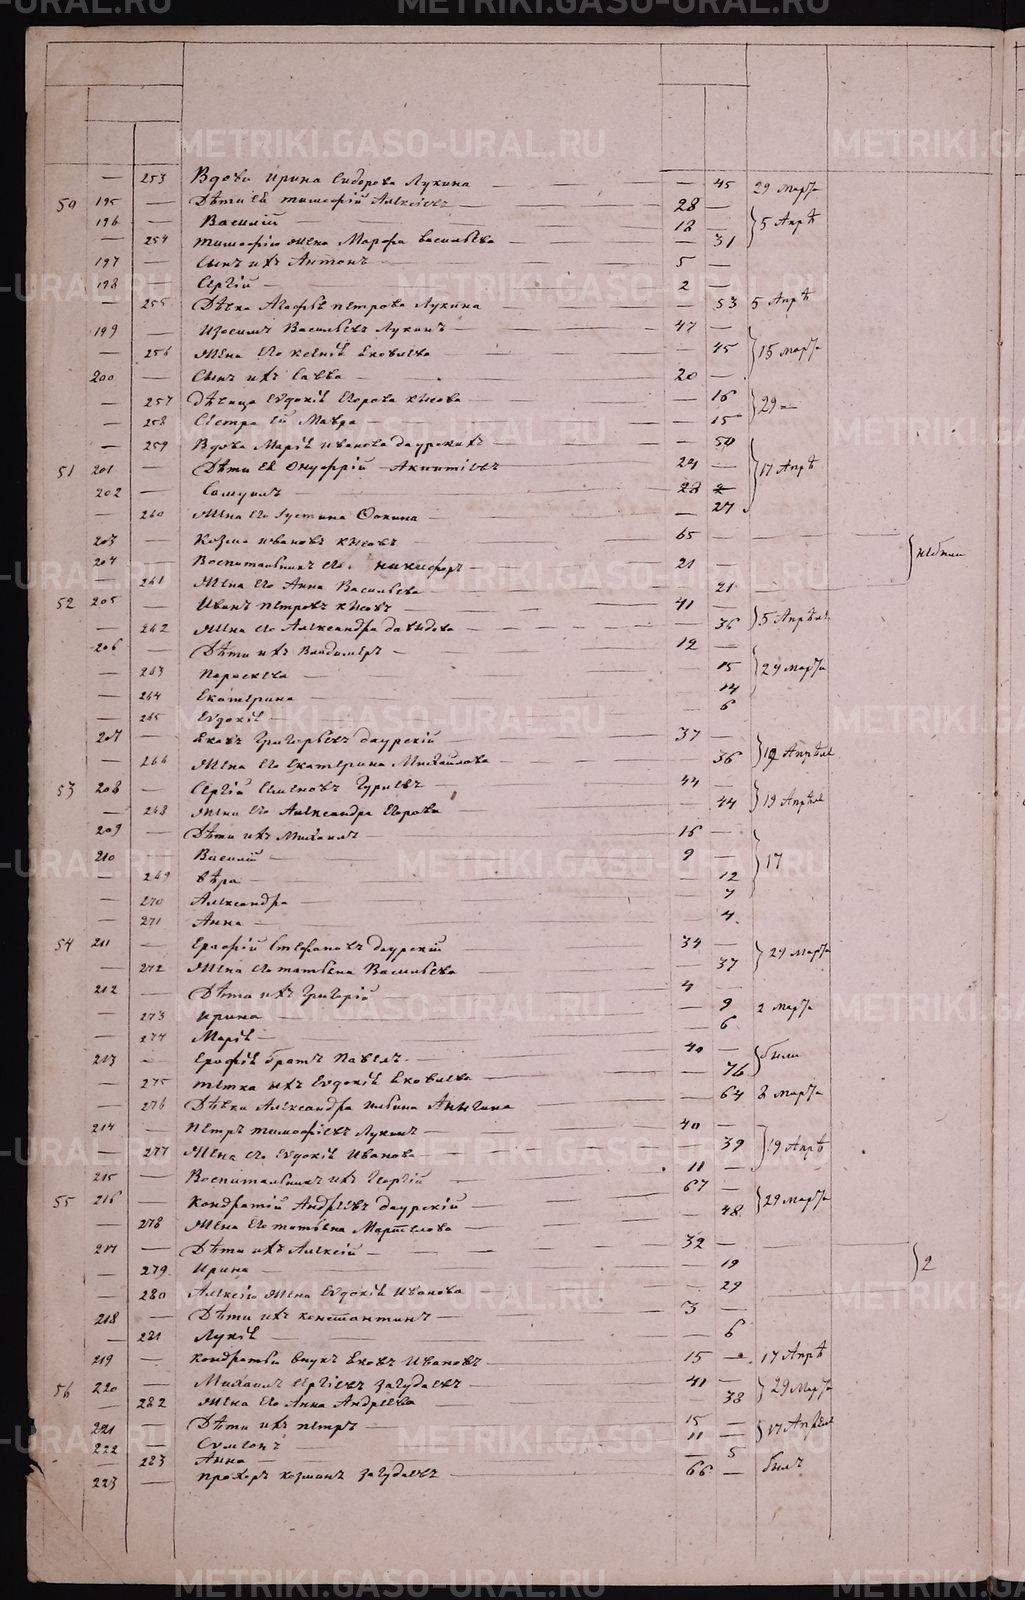 METRIKI.GASO-URAL.RU
— 253 Вдова Ирина Сидорова Лукина — 45 29 Марта
50 195 — Дѣти ея Тимофій Алексѣевъ 28 —
196 — Василій 18 — 5 Апрѣ
— 254 Тимофѣю жена Марфа Васильева — 31
197 — Сынъ ихъ Антонъ 5 —
198 — Сергій 2 —
— 255 Дѣвка Агафья Петрова Лукина — 53 5 Апрѣ
199 — Изосимъ Васильевъ Лукинъ 47 —
— 256 Жена его Ксенія Яковлева — 45 15 Марта
200 — Сынъ ихъ Савва 20 —
— 257 Дѣвица Евдокія Егорова — 16 29 —
— 258 Сестра ей Мавра — 15
— 259 Вдова Марія Иванова Даурскихъ — 50
51 201 — Дѣти ея Онуфрій 24 — 17 Апрѣ
202 — Самуилъ 28
— 260 Жена его Устина Фокина — 27
203 — Козма Ивановъ 65 —
204 — Воспитанникъ его Никифоръ 21 — небыли
— 261 Жена его Анна Васильева — 21
52 205 — Иванъ Петровъ 41 —
— 262 Жена его Александра Давыдова — 36 5 Апрѣля
206 — Дѣти ихъ Владимеръ 12 —
— 263 Параскева — 15 24 Марта
— 264 Екатерина — 14
— 265 Евдокія — 6
207 — Яковъ Григорьевъ Даурскій 37 —
— 266 Жена его Екатерина Михайлова — 36 19 Апрѣля
53 208 — Сергій Семеновъ Гурьевъ 44 —
— 268 Жена его Александра Егорова — 44 19 Апрѣля
209 — Дѣти ихъ Михаилъ 16 —
210 — Василій 9 — 17
— 269 Вѣра — 12
— 270 Александра — 7
— 271 Анна — 4
54 211 — Ерофій Стефановъ Даурскій 34 —
— 272 Жена его Татьяна Васильева — 37 29 Марта
212 — Дѣти ихъ Григорій 4 —
— 273 Ирина — 9 2 Марта
— 274 Марія — 6
213 — Ерофія братъ Павелъ 40 — были
— 275 Тетка ихъ Евдокія Яковлева — 76
— 276 Дѣвка Александра Ильина — 64 8 Марта
214 — Петръ Тимофѣевъ Лукинъ 40 —
— 277 Жена его Евдокія Иванова — 39 19 Апрѣ
215 — Воспитанникъ ихъ Георгій 11 —
55 216 — Кондратій Андреевъ Даурскій 67 — 29 Марта
— 278 Жена его Татьяна — 48
217 — Дѣти ихъ Алексій 32 —
— 279 Ирина — 19 2
— 280 Алексѣя жена Евдокія Иванова — 29
218 — Дѣти ихъ Константинъ 3 —
— 281 Лукія — 6
219 — Кондратья внукъ Яковъ Ивановъ 15 — 17 Апрѣ
56 220 — Михаилъ Сергіевъ Загудаевъ 41 —
— 282 Жена его Анна Андреева — 38 29 Марта
221 — Дѣти ихъ Петръ 15 — 17 Апрѣля
222 — Симеонъ 11 —
— 283 Анна — 5
223 — Прохоръ Козминъ Загудаевъ 66 — былъ